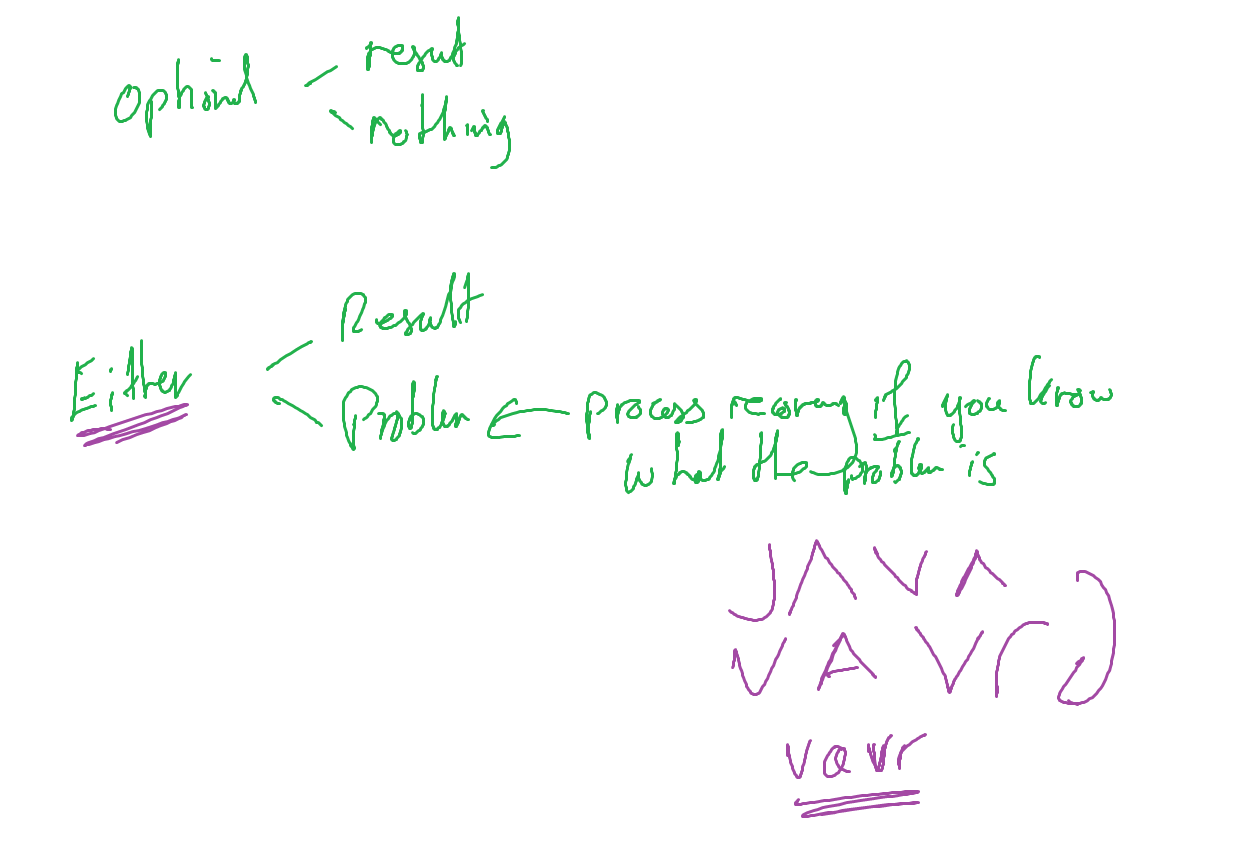 Optional
result
nothing
Either
Result
Problem
process recovery if you know
what the problem is
JAVA
VAVr
vavr